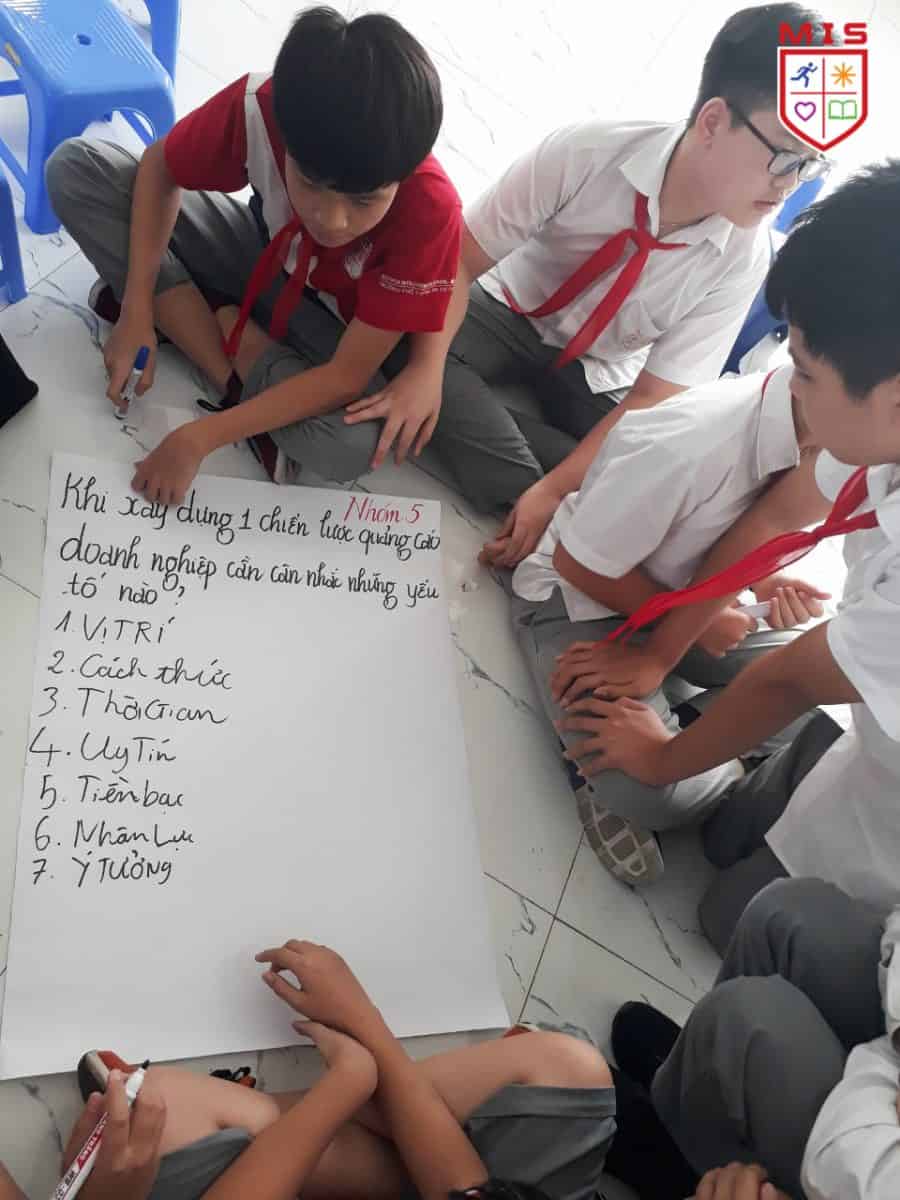 MIS
Nhóm 5
Khi xây dựng 1 chiến lược quảng cáo
doanh nghiệp cần cân nhắc những yếu
tố nào?
1. VỊ TRÍ
2. Cách thức
3. Thời Gian
4. Uy Tín
5. Tiền bạc
6. Nhân Lực
7. Ý TƯỞNG